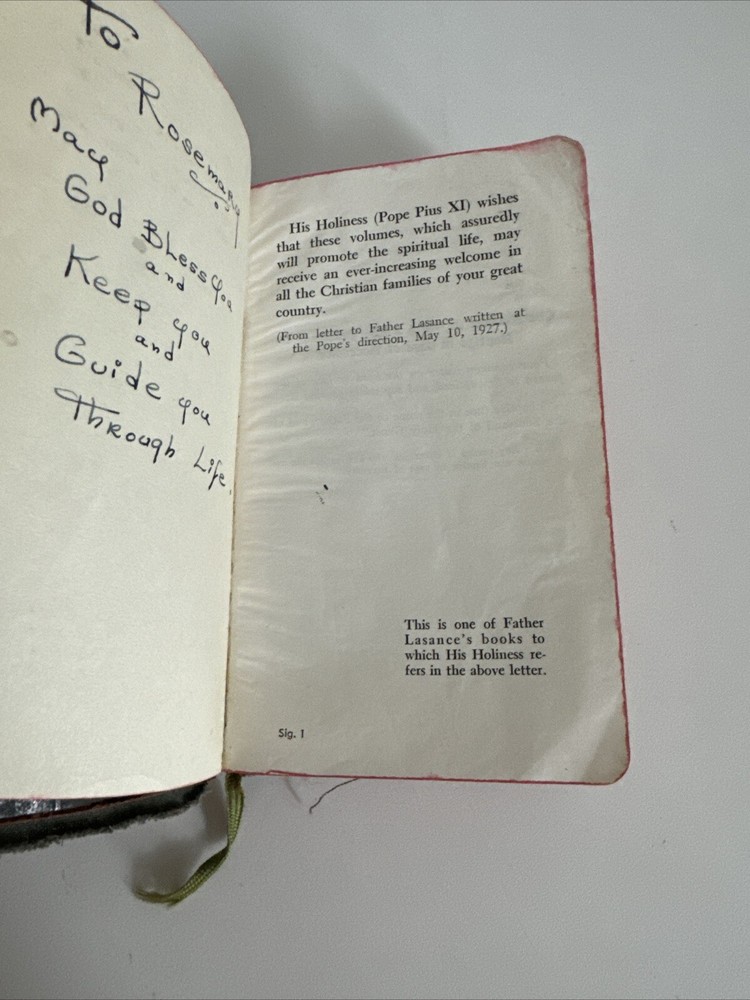 To
Rosemary
May
God Bless you
and
Keep you
and
Guide you
Through Life.
His Holiness (Pope Pius XI) wishes
that these volumes, which assuredly
will promote the spiritual life, may
receive an ever-increasing welcome in
all the Christian families of your great
country.
(From letter to Father Lasance written at
the Pope's direction, May 10, 1927.)
This is one of Father
Lasance's books to
which His Holiness re-
fers in the above letter.
Sig. 1